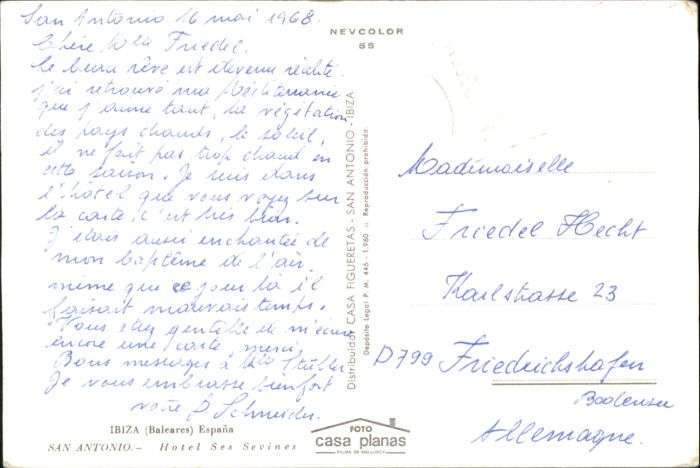 San Antonio 16 mai 1968.
Chère Mlle Friedel.
Le beau rêve est devenu réalité.
j'ai retrouvé ma Méditerranée
que j'aime tant, la végétation
des pays chauds, le soleil,
il ne fait pas trop chaud en
cette saison. Je suis dans
l'hôtel que vous voyez sur
la carte, c'est très bien.
J'étais aussi enchantée de
mon baptême de l'air,
même que ce jour là il
faisait mauvais temps.
Vous êtes gentille de m'écrire
encore une carte, merci.
Bons messages à Mlle
Je vous embrasse bien fort
votre P. Schneider.
IBIZA (Baleares) España
SAN ANTONIO.- Hotel Ses Sevines
NEVCOLOR
55
Distribuidor CASA FIGUERETAS - SAN ANTONIO - IBIZA
Depósito Legal P. M. 445 - 1.960 :: Reproducción prohibida.
FOTO
casa planas
PALMA DE MALLORCA
Mademoiselle
Friedel Hecht
Karlstrasse 23
D799 Friedrichshafen
Bodensee
Allemagne.